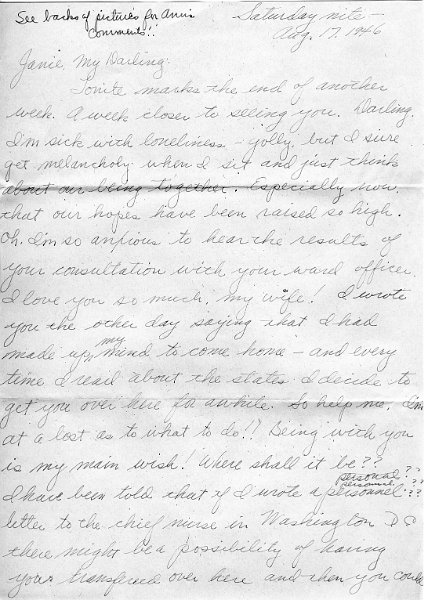 See backs of pictures for Ann's
Comments!!
Saturday nite -
Aug. 17, 1946
Janie, My Darling:
Tonite marks the end of another
week. A week closer to seeing you. Darling,
I'm sick with loneliness - golly, but I sure
get melancholy when I sit and just think
about our being together. Especially now,
that our hopes have been raised so high.
Oh I'm so anxious to hear the results of
your consultation with your ward officer.
I love you so much, my wife! I wrote
you the other day saying that I had
made up my mind to come home - and every
time I read about the states I decide to
get you over here for awhile. So help me, I'm
at a lost as to what to do!! Being with you
is my main wish! Where shall it be??
personal??
personnel
I have been told that if I wrote a personnel??
letter to the chief nurse in Washington D C
there might be a possibility of having
you transfered over here and then you could